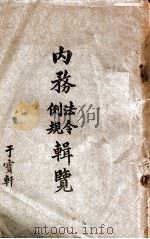 内務法令例規輯覽
于寶軒